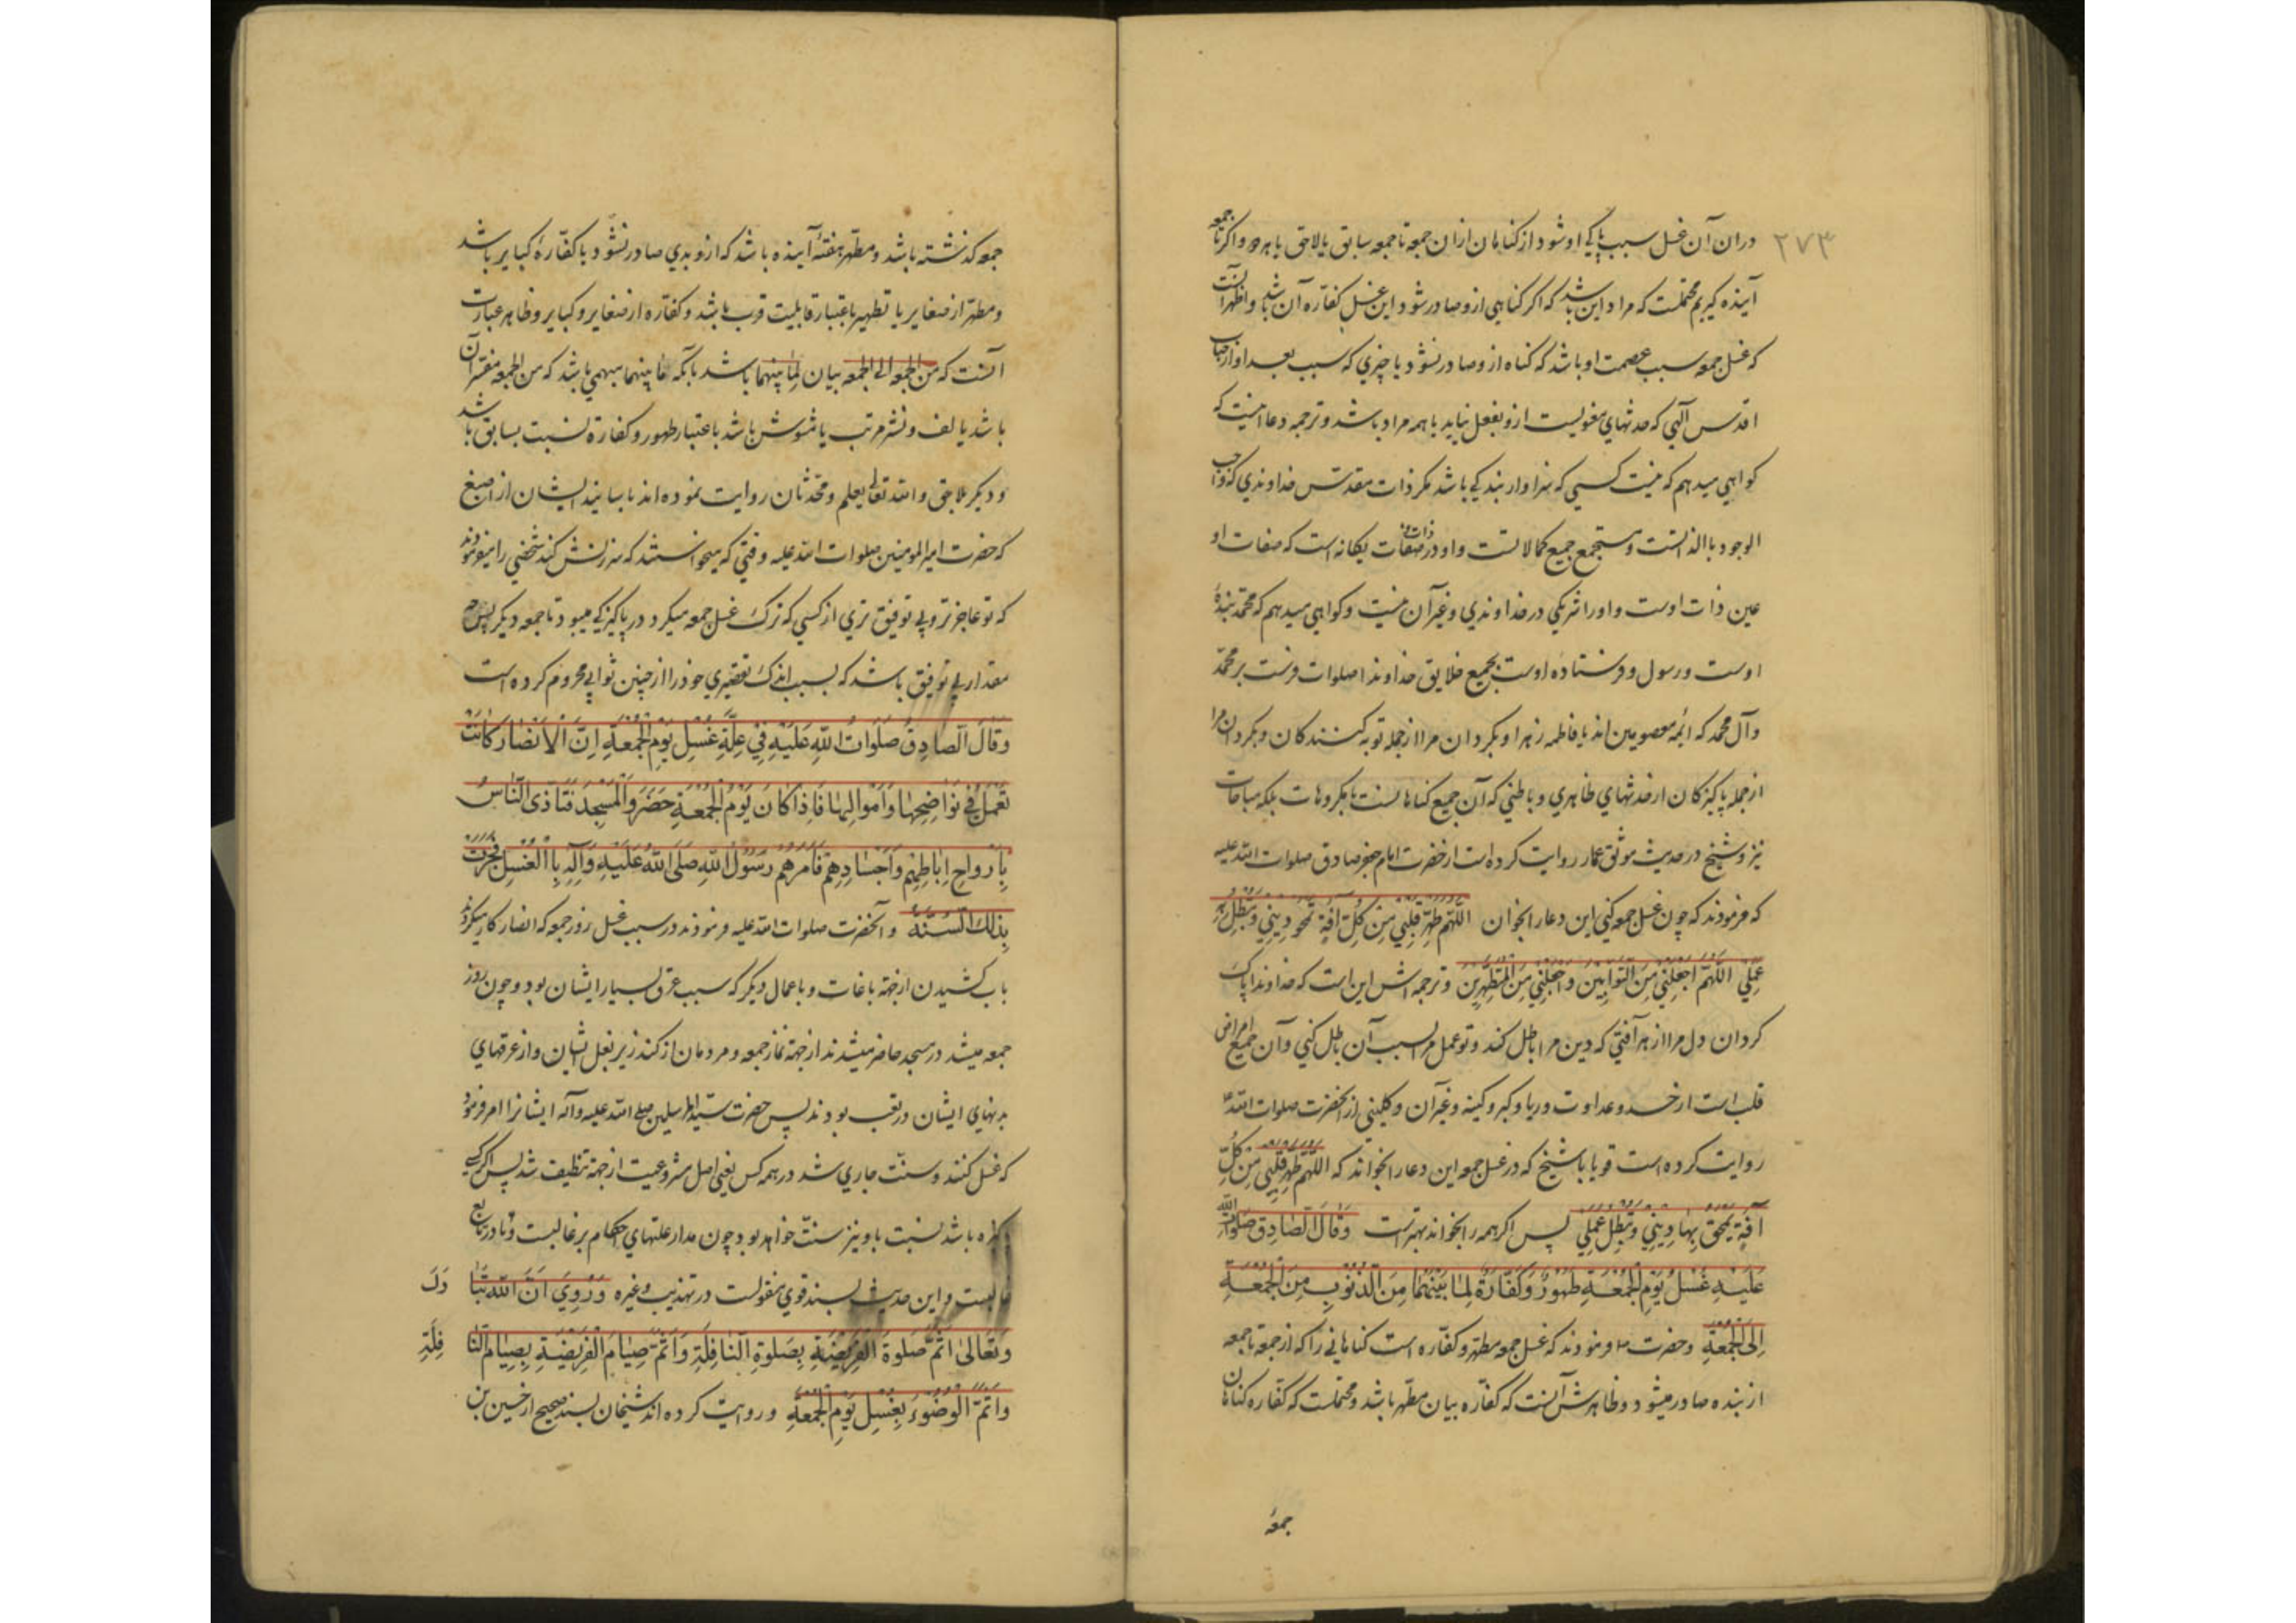 ۲۷۳
دران آن غسل سبب پاکی او شود از کناهان ازان جمعه تا جمعه سابق یا لاحق یا هر دو و اکر تا جمعه
آینده کیریم محتملست که مراد این باشد که اکر کناهی ازو صادر شود این غسل کفاره آن باشد و اظهر آنست
که غسل جمعه سبب عصمت او باشد که کناه ازو صادر نشود یا چیزی که سبب بعد او از جناب
اقدس الهی که حدثهای معنویست ازو بفعل نیاید یا همه مراد باشد و ترجمه دعا اینست که
کواهی میدهم که نیست کسی که سزاوار بندکی باشد مکر ذات مقدس خداوندی که واجب
الوجود بالذاتست و مستجمع جمیع کمالاتست و او در ذات و صفات یکانه است که صفات او
عین ذات اوست و او را شریکی در خداوندی و غیر آن نیست و کواهی میدهم که محمد بندهٔ
اوست و رسول و فرستاده اوست بجمیع خلایق خداوندا صلوات فرست بر محمد
و آل محمد که ائمه معصومین اند یا فاطمه زهرا و بکردان مرا از جمله توبه کنندکان و بکردان مرا
از جمله پاکیزکان از حدثهای ظاهری و باطنی که آن جمیع کناهانست یا مکروهات بلکه مباحات
نیز و شیخ در حدیث موثق عمار روایت کرده است از حضرت امام جعفر صادق صلوات الله علیه
که فرمودند که چون غسل جمعه کنی این دعا را بخوان اللّهم طهّر قلبی من کلّ آفة تمحق دینی و تبطل به
عملی اللّهم اجعلنی من التّوابین و اجعلنی من المتطهرین و ترجمه اش این است که خداوندا پاک
کردان دل مرا از هر آفتی که دین مرا باطل کند و تو عمل مرا بسبب آن باطل کنی و آن جمیع امراض
قلب است از حسد و عداوت و ریا و کبر و کینه و غیر آن و کلینی از آنحضرت صلوات الله
روایت کرده است قویا با شیخ که در غسل جمعه این دعا را بخواند که اللّهم طهّر قلبی من کلّ
آفة یمحق بها دینی و تبطل عملی پس اکر همه را بخواند بهتر است و قال الصّادق صلوات الله
علیه غسل یوم الجمعة طهور و کفّارة لما بینهما من الذّنوب من الجمعة
الی الجمعة و حضرت فرمودند که غسل جمعه مطهر و کفاره است کناهانی را که از جمعه تا جمعه
از بنده صادر میشود و ظاهرش آنست که کفاره بیان مطهر باشد و محتملست که کفاره کناهان
جمعهٔ
جمعه کذشته باشد و مطهر هفتهٔ آینده باشد که ازو بدی صادر نشود یا کفارهٔ کبایر باشد
و مطهر از صغایر یا تطهیر باعتبار قابلیت قرب باشد و کفاره از صغایر و کبایر و ظاهر عبارت
آنست که من الجمعه الی الجمعه بیان لما بینهما باشد یا آنکه ما بینهما مبهمی باشد که من الجمعه مفسر آن
باشد یا لف و نشر مرتب یا مشوش باشد باعتبار طهور و کفارة نسبت بسابق باشد
و دیکر لاحق و الله تعالی یعلم و محدثان روایت نموده اند باسانید ایشان از اصبغ
که حضرت امیر المومنین صلوات الله علیه وقتی که میخواستند که سرزنش کنند شخصی را میفرمودند
که تو عاجزتر و بی توفیق تری از کسی که ترک غسل جمعه میکرد در پاکیزکی میبود تا جمعه دیکر پس چه
مقدار بی توفیق باشد که بسبب اندک تقصیری خود را از چنین ثوابی محروم کرده است
و قال الصّادق صلوات اللّه علیه فی علّة غسل یوم الجمعة انّ الانصار کانت
تعمل فی نواضحها و اموالها فاذا کان یوم الجمعة حضروا المسجد فتاذی النّاس
بارواح اباطهم و اجسادهم فامرهم رسول اللّه صلی اللّه علیه و آله بالغسل فجرت
بذلک السّنّة و آنحضرت صلوات الله علیه فرمودند در سبب غسل روز جمعه که انصار کار میکردند
باب کشیدن از جهة باغات و باعمال دیکر که سبب عرق بسیار ایشان بود و چون روز
جمعه میشد در مسجد حاضر میشدند از جهة نماز جمعه و مردمان از کند زیر بغل ایشان و از عرقهای
بدنهای ایشان در تعب بودند پس حضرت سید المرسلین صلی الله علیه و آله ایشانرا امر فرمود
که غسل کنند و سنّت جاری شد در همه کس یعنی اصل مشروعیت از جهة تنظیف شد پس اکر کسی
پاکیزه باشد نسبت باو نیز سنّت خواهد بود چون مدار علتهای احکام بر غالبست و نادر تابع
غالبست و این حدیث بسند قوی منقولست در تهذیب و غیره و روی انّ اللّه تبا رک
و تعالی اتمّ صلوة الفریضة بصلوة النافلة و اتمّ صیام الفریضة بصیام النّا فلة
و اتمّ الوضوء بغسل یوم الجمعة و روایت کرده اند شیخان بسند صحیح از حسین بن